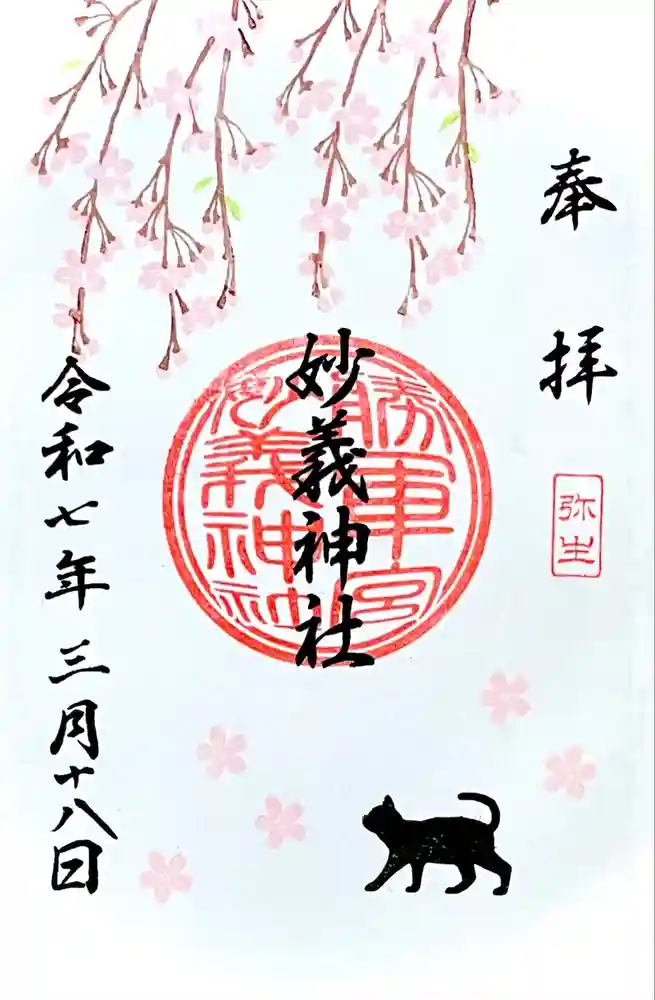 奉拝
弥生
勝軍宮
妙義神社
妙義神社
令和七年三月十八日